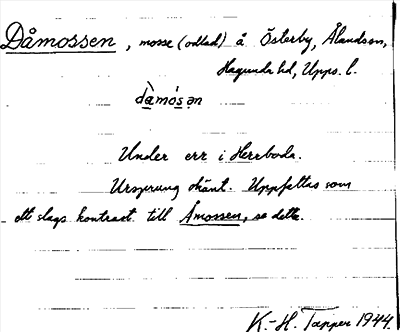 Dåmossen, mosse (odlad) å Österby, Ålandssn,
Hagunda hd, Upps. l.
dåmós​an
Under err i Herrboda.
Ursprung okänt. Uppfattas som
ett slags kontrast till Åmossen, se detta.
K.-H. Tapper 1944.